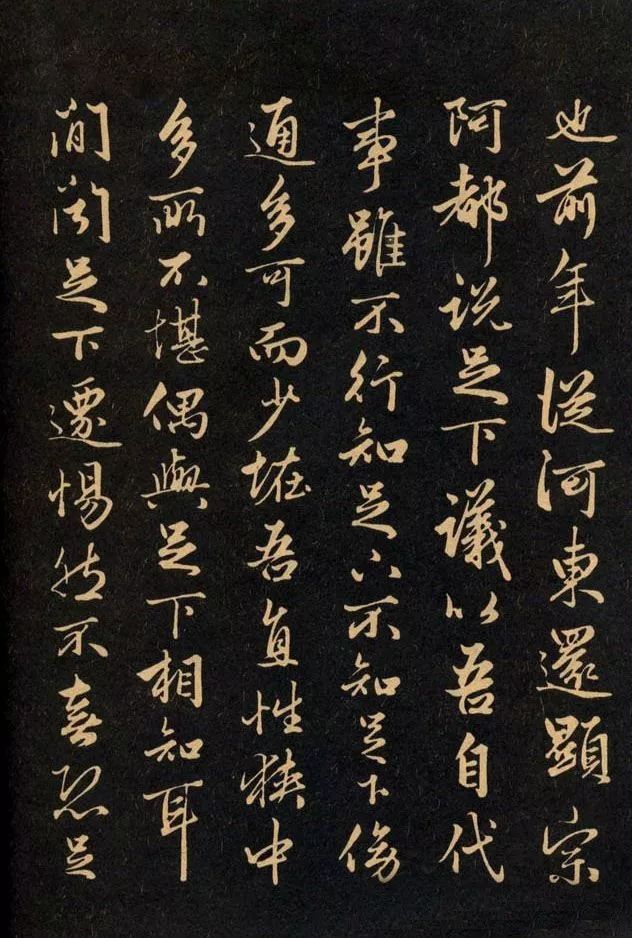 也前年從河東還顯宗
阿都說足下議以吾自代
事雖不行知足下不知足下傍
通多可而少怪吾直性狹中
多所不堪偶與足下相知耳
間聞足下遷惕然不喜恐足